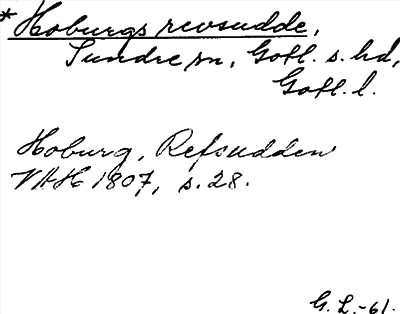 *Hoburgs revsudde,
Sundre sn, Gotl. s. hd,
Gotl. l.
Hoburg, Refsudden
VAH 1807, s. 28.
G. L.-61.